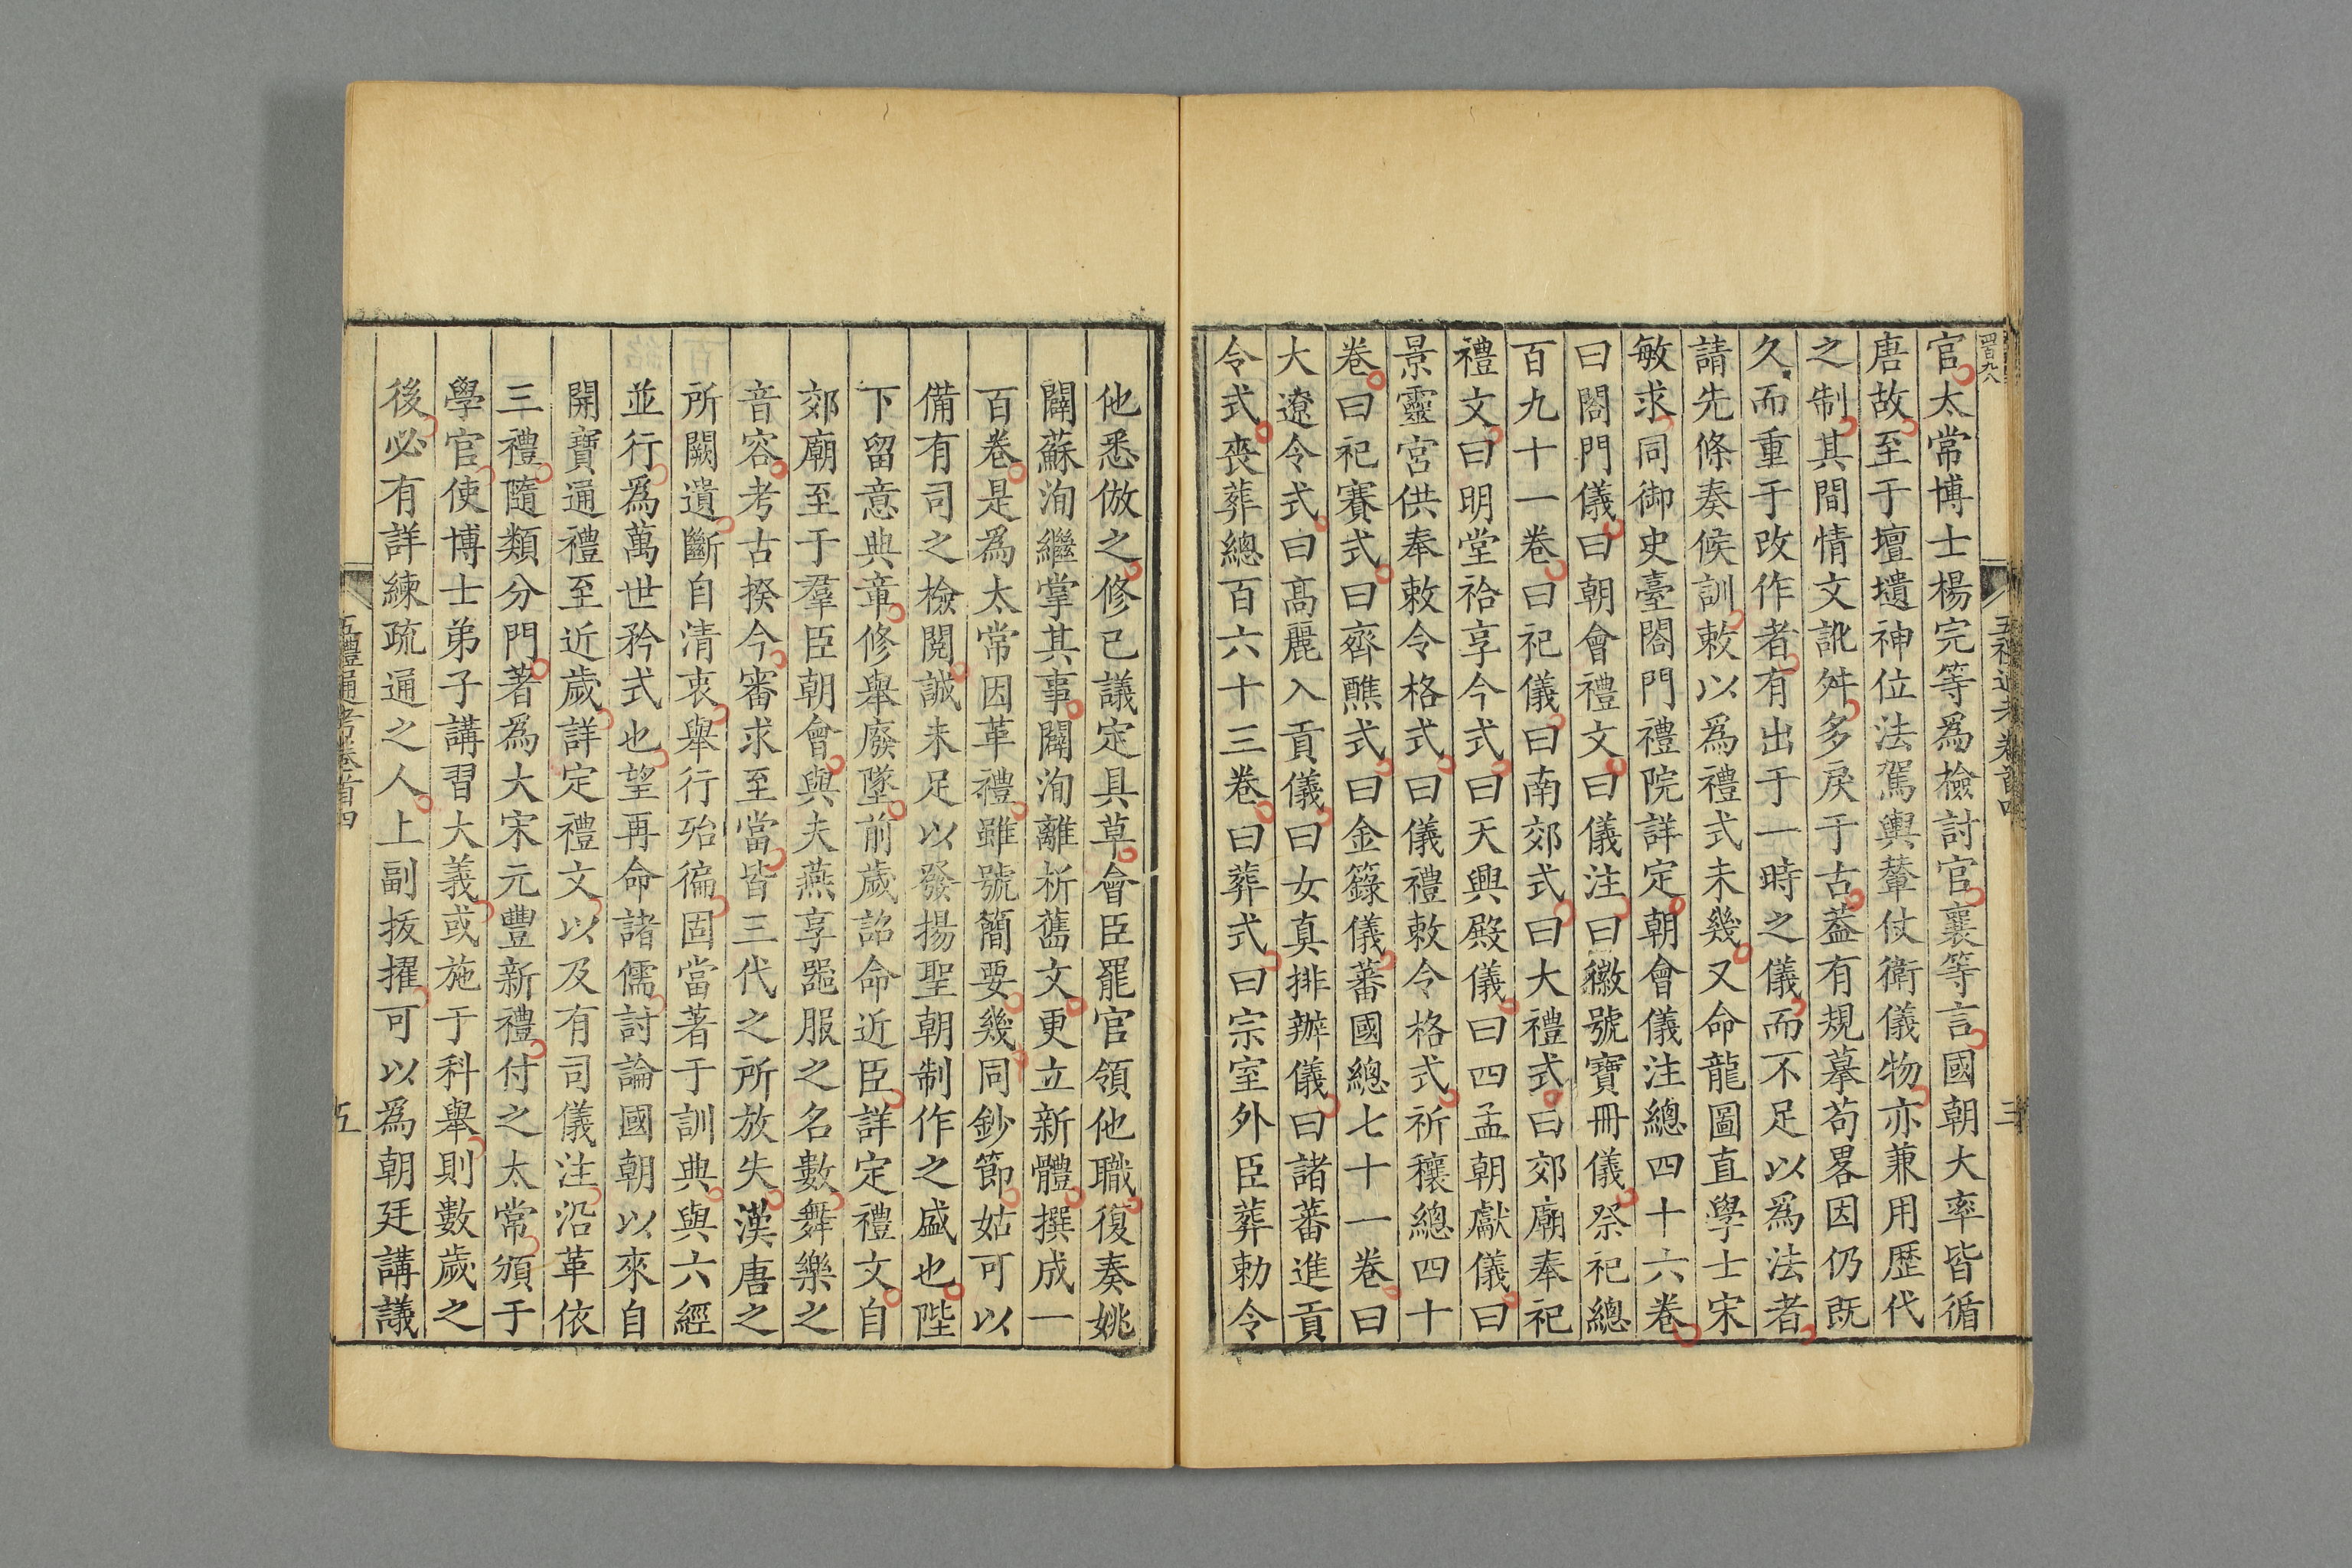 四百九八
五禮通考卷首四
三
官太常博士楊完等爲檢討官襄等言國朝大率皆循
唐故至于壇壝神位法駕輿輦仗衛儀物亦兼用歷代
之制其間情文訛舛多戾于古葢有規摹苟畧因仍旣
久而重于改作者有出于一時之儀而不足以爲法者
請先條奏候訓敕以爲禮式未幾又命龍圖直學士宋
敏求同御史臺閤門禮院詳定朝會儀注總四十六卷
曰閤門儀曰朝會禮文曰儀注曰徽號寶冊儀祭祀總
百九十一卷曰祀儀曰南郊式曰大禮式曰郊廟奉祀
禮文曰明堂祫享令式曰天興殿儀曰四孟朝獻儀曰
景靈宮供奉敕令格式曰儀禮敕令格式祈禳總四十
卷曰祀賽式曰齊醮式曰金籙儀蕃國總七十一卷曰
大遼令式曰高麗入貢儀曰女真排辦儀曰諸蕃進貢
令式喪葬總百六十三卷曰葬式曰宗室外臣葬勅令
他悉倣之修已議定具草會臣罷官領他職復奏姚
闢蘇洵繼掌其事闢洵離析舊文更立新體撰成一
百卷是爲太常因革禮雖號簡要幾同鈔節姑可以
備有司之檢閱誠未足以發揚聖朝制作之盛也陛
下留意典章修舉廢墜前歲詔命近臣詳定禮文自
郊廟至于羣臣朝會與夫燕享器服之名數舞樂之
音容考古揆今審求至當皆三代之所放失漢唐之
所闕遺斷自清衷舉行殆徧固當著于訓典與六經
並行爲萬世矜式也望再命諸儒討論國朝以來自
開寶通禮至近歲詳定禮文以及有司儀注沿革依
三禮隨類分門著爲大宋元豐新禮付之太常頒于
學官使博士弟子講習大義或施于科舉則數歲之
後必有詳練疏通之人上副拔擢可以爲朝廷講議
五禮通考卷首四
五